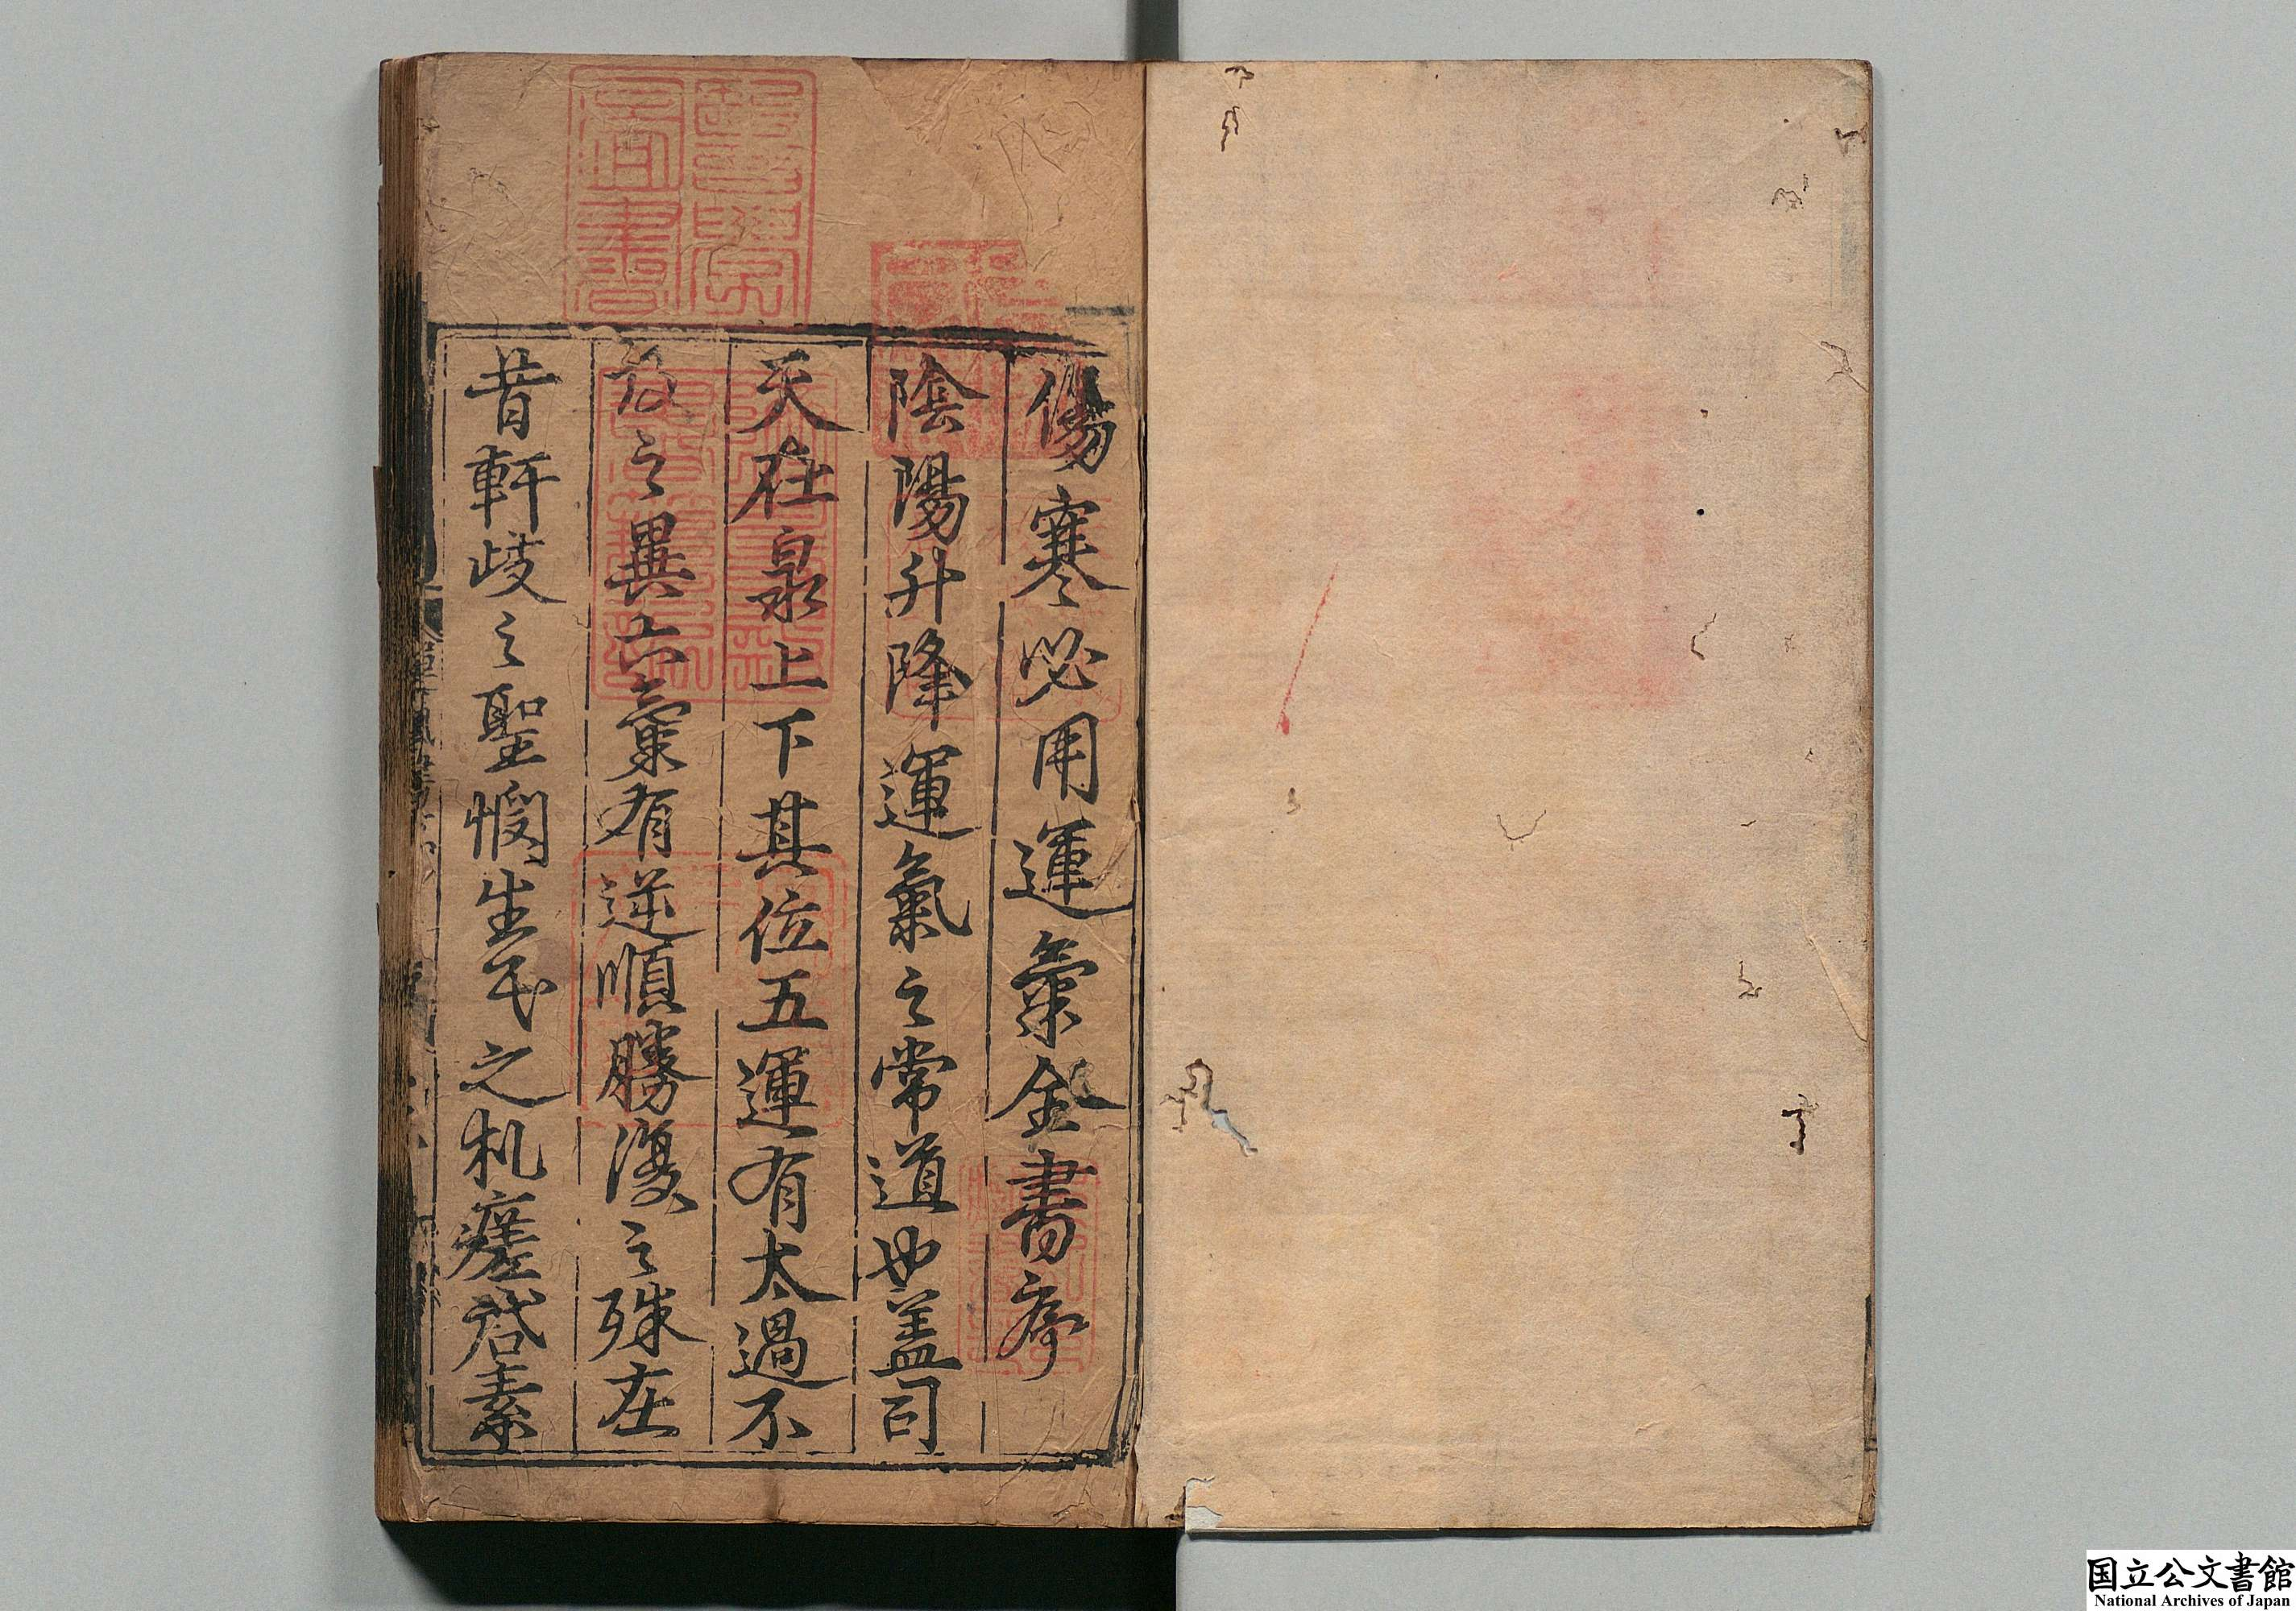 傷寒必用運氣全書序
陰陽升降運氣之常道也盖司
天在泉上下其位五運有太過不
及之異六氣有逆順勝復之殊在
昔軒岐之聖憫生民之札瘥啓素
醫學
圖書
国立公文書館
National Archives of Japan